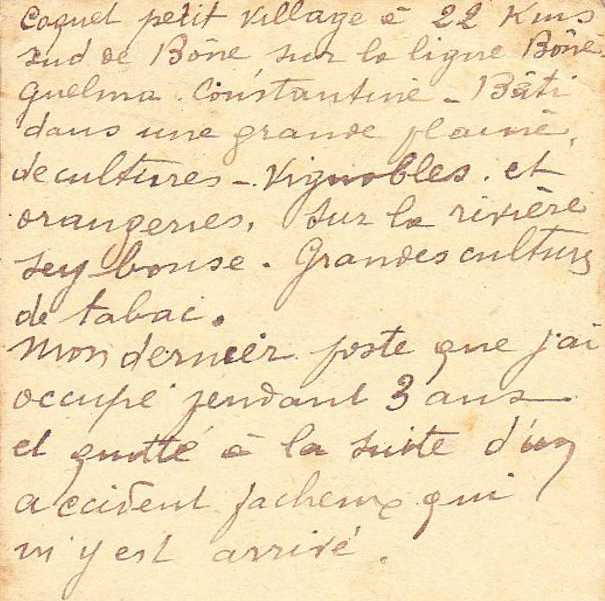 Coquet petit village à 22 Kms
sud de Bône sur la ligne Bône-
Guelma. Constantine - Bâti
dans une grande plaine,
de cultures - Vignobles. et
orangeries, sur la rivière
Sey bouse. Grandes cultures
de tabac.
Mon dernier poste que j'ai
occupé pendant 3 ans
et quitté à la suite d'un
accident facheux qui
m'y est arrivé.